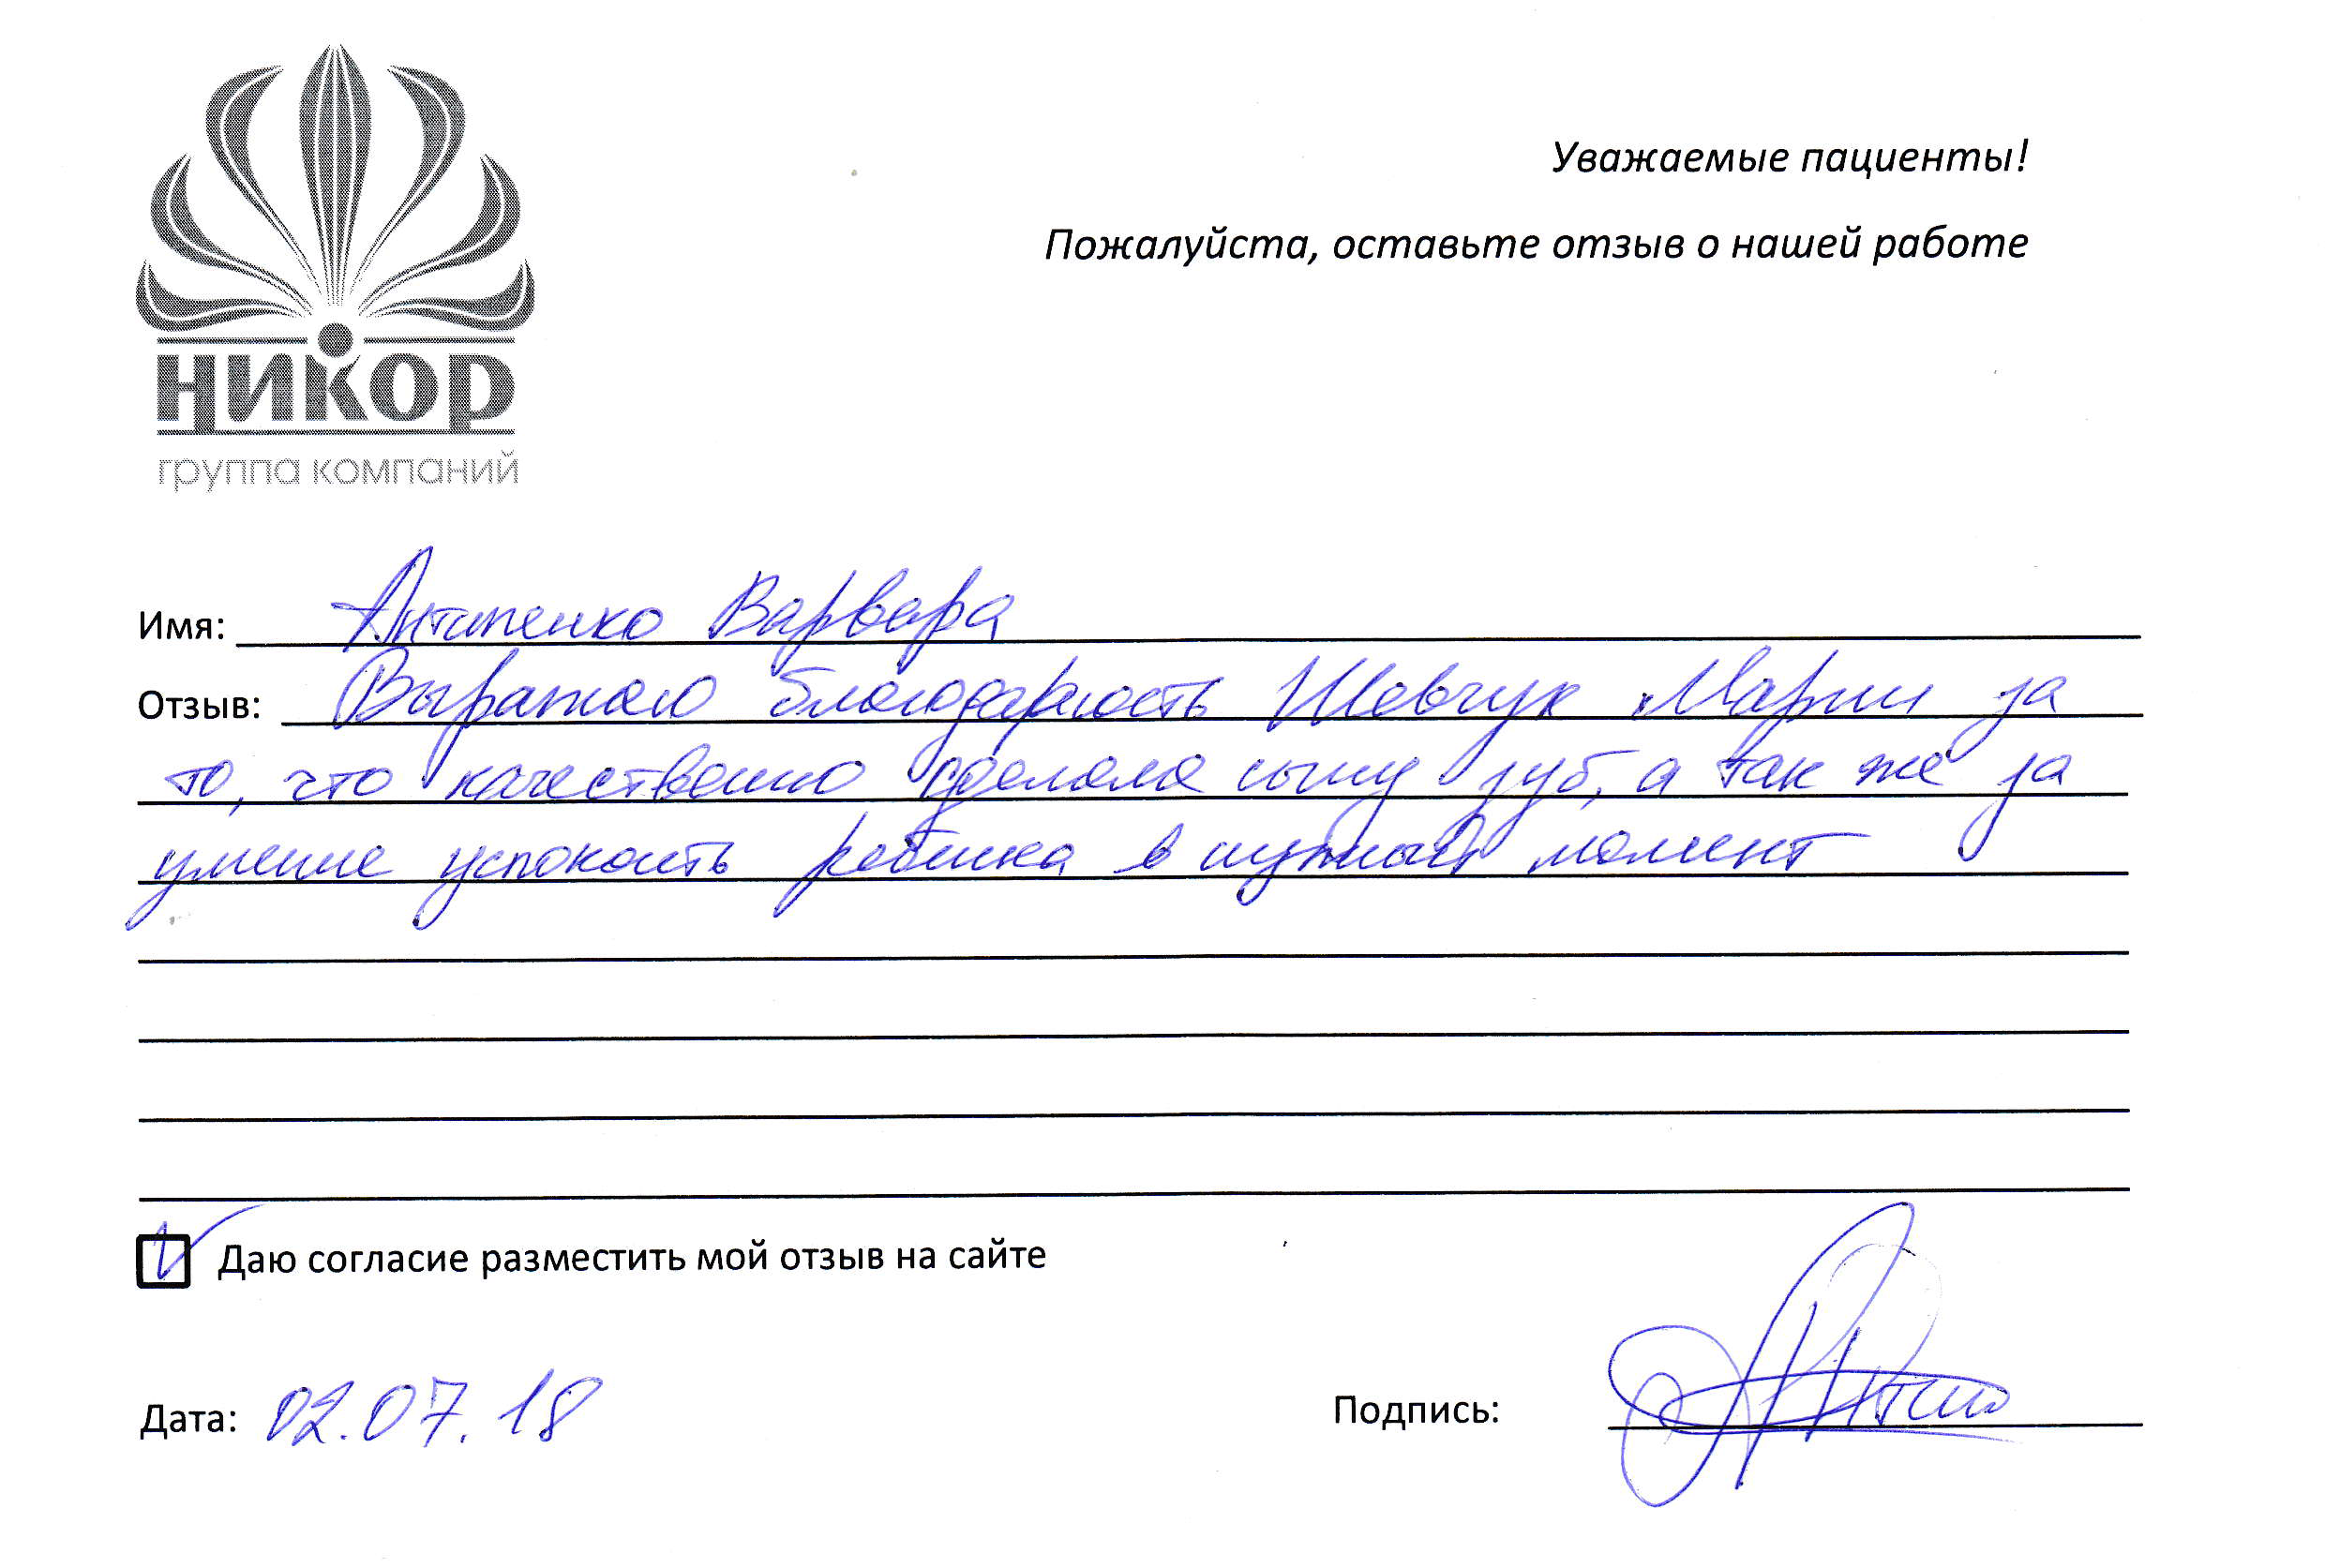 Уважаемые пациенты!
Пожалуйста, оставьте отзыв о нашей работе
НИКОР
группа компаний
Имя: Антипенко Варвара
Отзыв: Выражаю благодарность Шевчук Марии за
то, что качественно сделала сыну зуб, а так же за
умение успокоить ребенка в нужный момент
Даю согласие разместить мой отзыв на сайте
Дата: 02.07.18
Подпись: